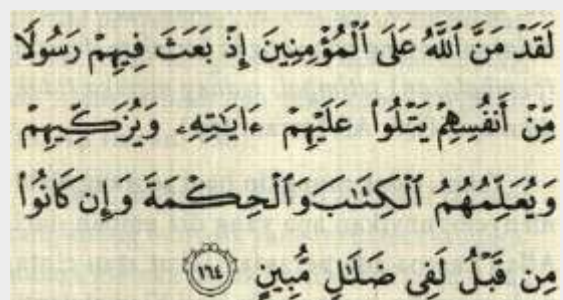 لَقَدْ مَنَّ ٱللَّهُ عَلَى ٱلْمُؤْمِنِينَ إِذْ بَعَثَ فِيهِمْ رَسُولًا
مِّنْ أَنفُسِهِمْ يَتْلُوا۟ عَلَيْهِمْ ءَايَـٰتِهِۦ وَيُزَكِّيهِمْ
وَيُعَلِّمُهُمُ ٱلْكِتَـٰبَ وَٱلْحِكْمَةَ وَإِن كَانُوا۟
مِن قَبْلُ لَفِى ضَلَـٰلٍ مُّبِينٍ ١٦٤